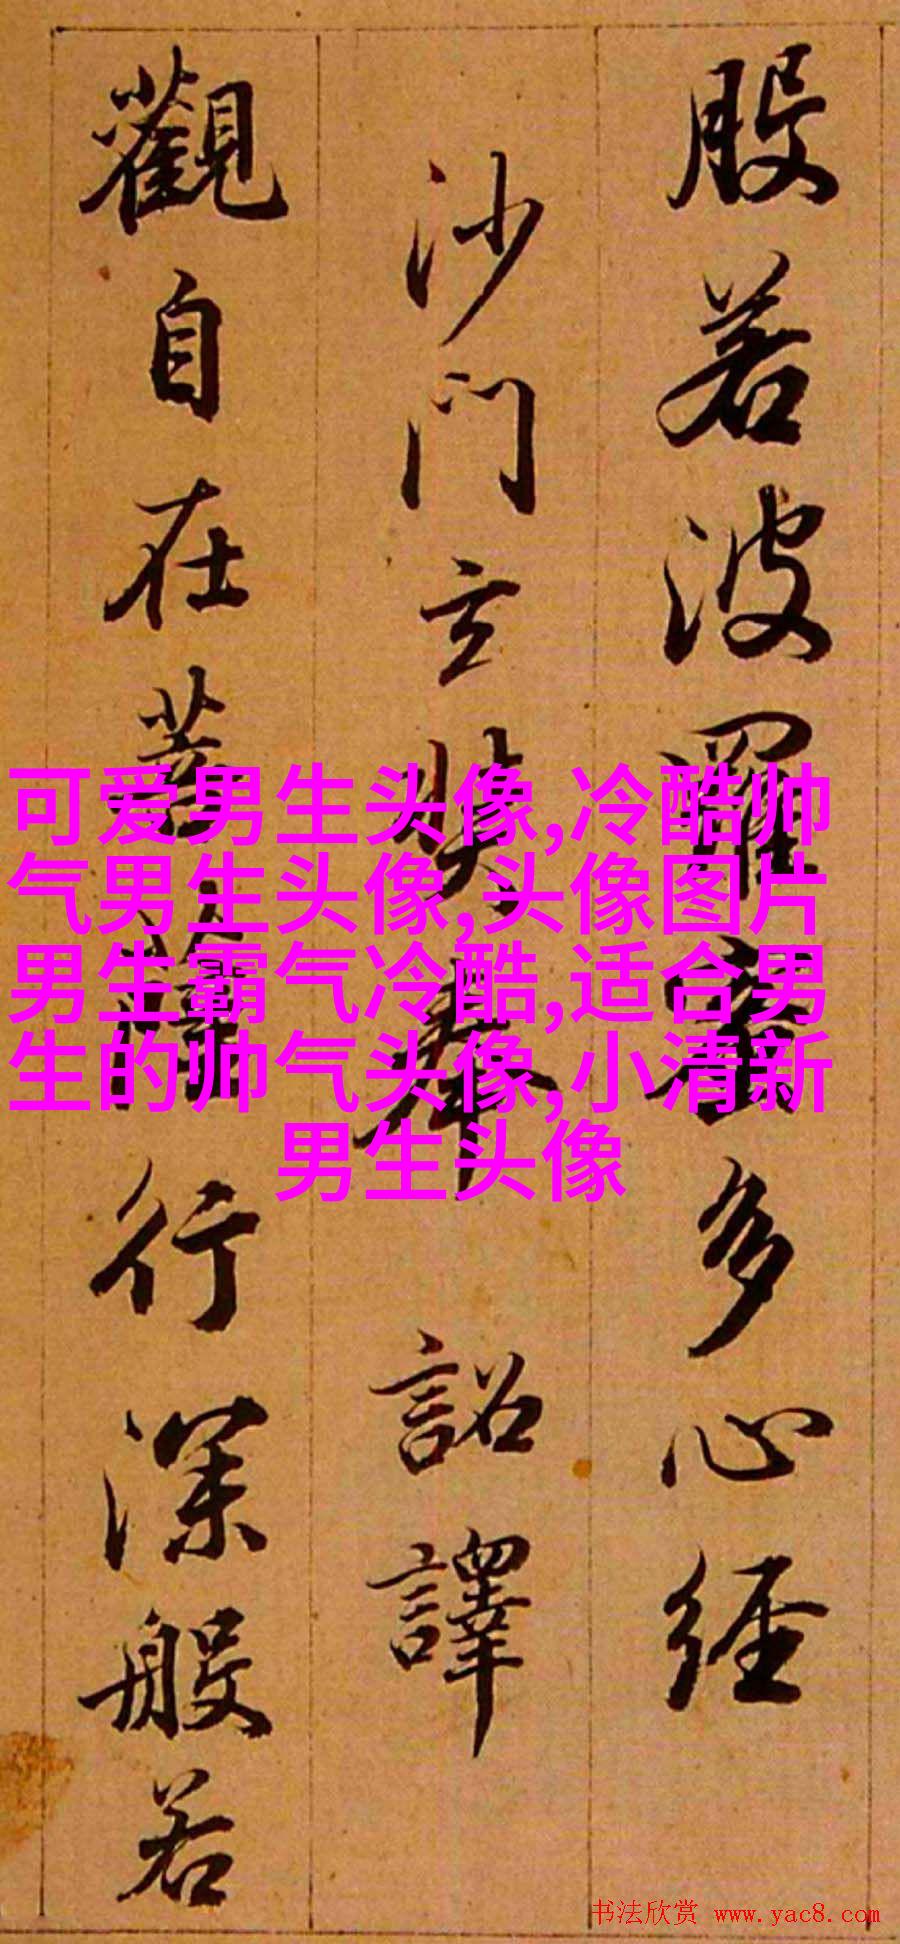 般若波羅蜜多心經
沙門玄奘奉 詔譯
觀自在菩薩行深般若
可爱男生头像,冷酷帅
气男生头像,头像图片
男生霸气冷酷,适合男
生的帅气头像,小清新
男生头像
书法欣赏 www.yac8.com